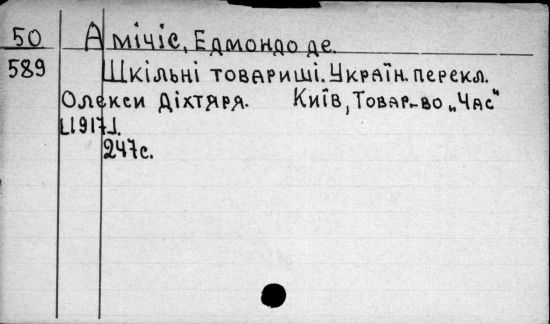 50 Амічіс, Едмондо де.
589 Шкільні товариші. Україн. перекл.
Олекси Діхтяря. Київ, Товар-во „Час“
[1917].
247с.